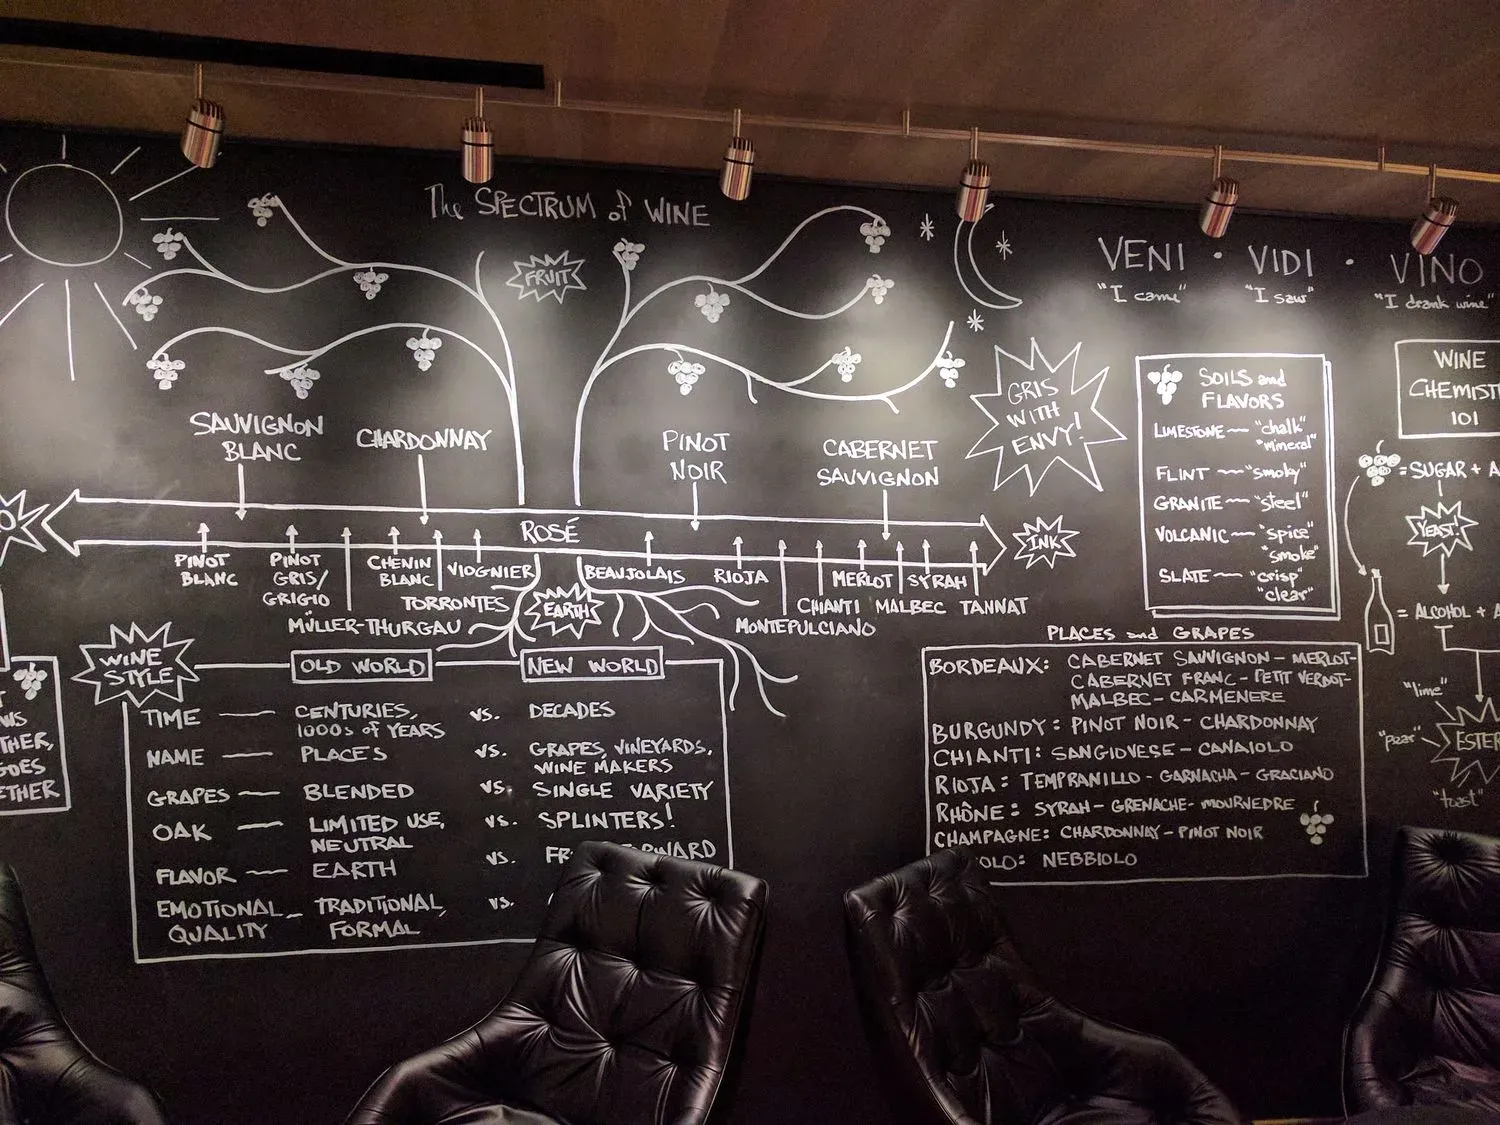 The SPECTRUM of WINE
FRUIT
VENI · VIDI · VINO
"I came" "I saw" "I drank wine"
GRIS
WITH
ENVY!
SAUVIGNON
BLANC
CHARDONNAY
PINOT
NOIR
CABERNET
SAUVIGNON
ROSÉ
INK
PINOT
BLANC
PINOT
GRIS/
GRIGIO
MÜLLER-THURGAU
CHENIN
BLANC
TORRONTES
VIOGNIER
EARTH
BEAUJOLAIS
RIOJA
MONTEPULCIANO
CHIANTI
MERLOT
MALBEC
SYRAH
TANNAT
SOILS and
FLAVORS
LIMESTONE ~ "chalk"
"mineral"
FLINT ~ "smoky"
GRANITE ~ "steel"
VOLCANIC ~ "spice"
"smoke"
SLATE ~ "crisp"
"clear"
WINE
101
= SUGAR +
YEAST!
= ALCOHOL +
"lime"
"toast"
WINE
STYLE
OLD WORLD
NEW WORLD
TIME — CENTURIES, vs. DECADES
1000s of YEARS
NAME — PLACES vs. GRAPES, VINEYARDS,
WINE MAKERS
GRAPES — BLENDED vs. SINGLE VARIETY
OAK — LIMITED USE, vs. SPLINTERS!
NEUTRAL
FLAVOR — EARTH vs.
EMOTIONAL — TRADITIONAL, vs.
QUALITY FORMAL
PLACES and GRAPES
BORDEAUX: CABERNET SAUVIGNON - MERLOT-
CABERNET FRANC - PETIT VERDOT-
MALBEC - CARMENERE
BURGUNDY: PINOT NOIR - CHARDONNAY
CHIANTI: SANGIOVESE - CANAIOLO
RIOJA: TEMPRANILLO - GARNACHA - GRACIANO
RHÔNE: SYRAH - GRENACHE - MOURVEDRE
CHAMPAGNE: CHARDONNAY - PINOT NOIR
NEBBIOLO